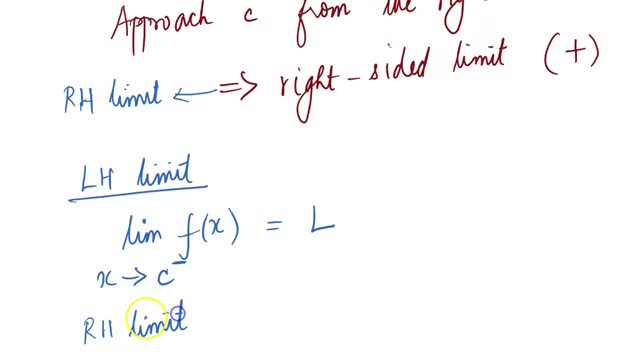 Approach c from the
RH limit ⟸⟹ right-sided limit (+)
LH limit
lim f(x) = L
x → c⁻
RH limit